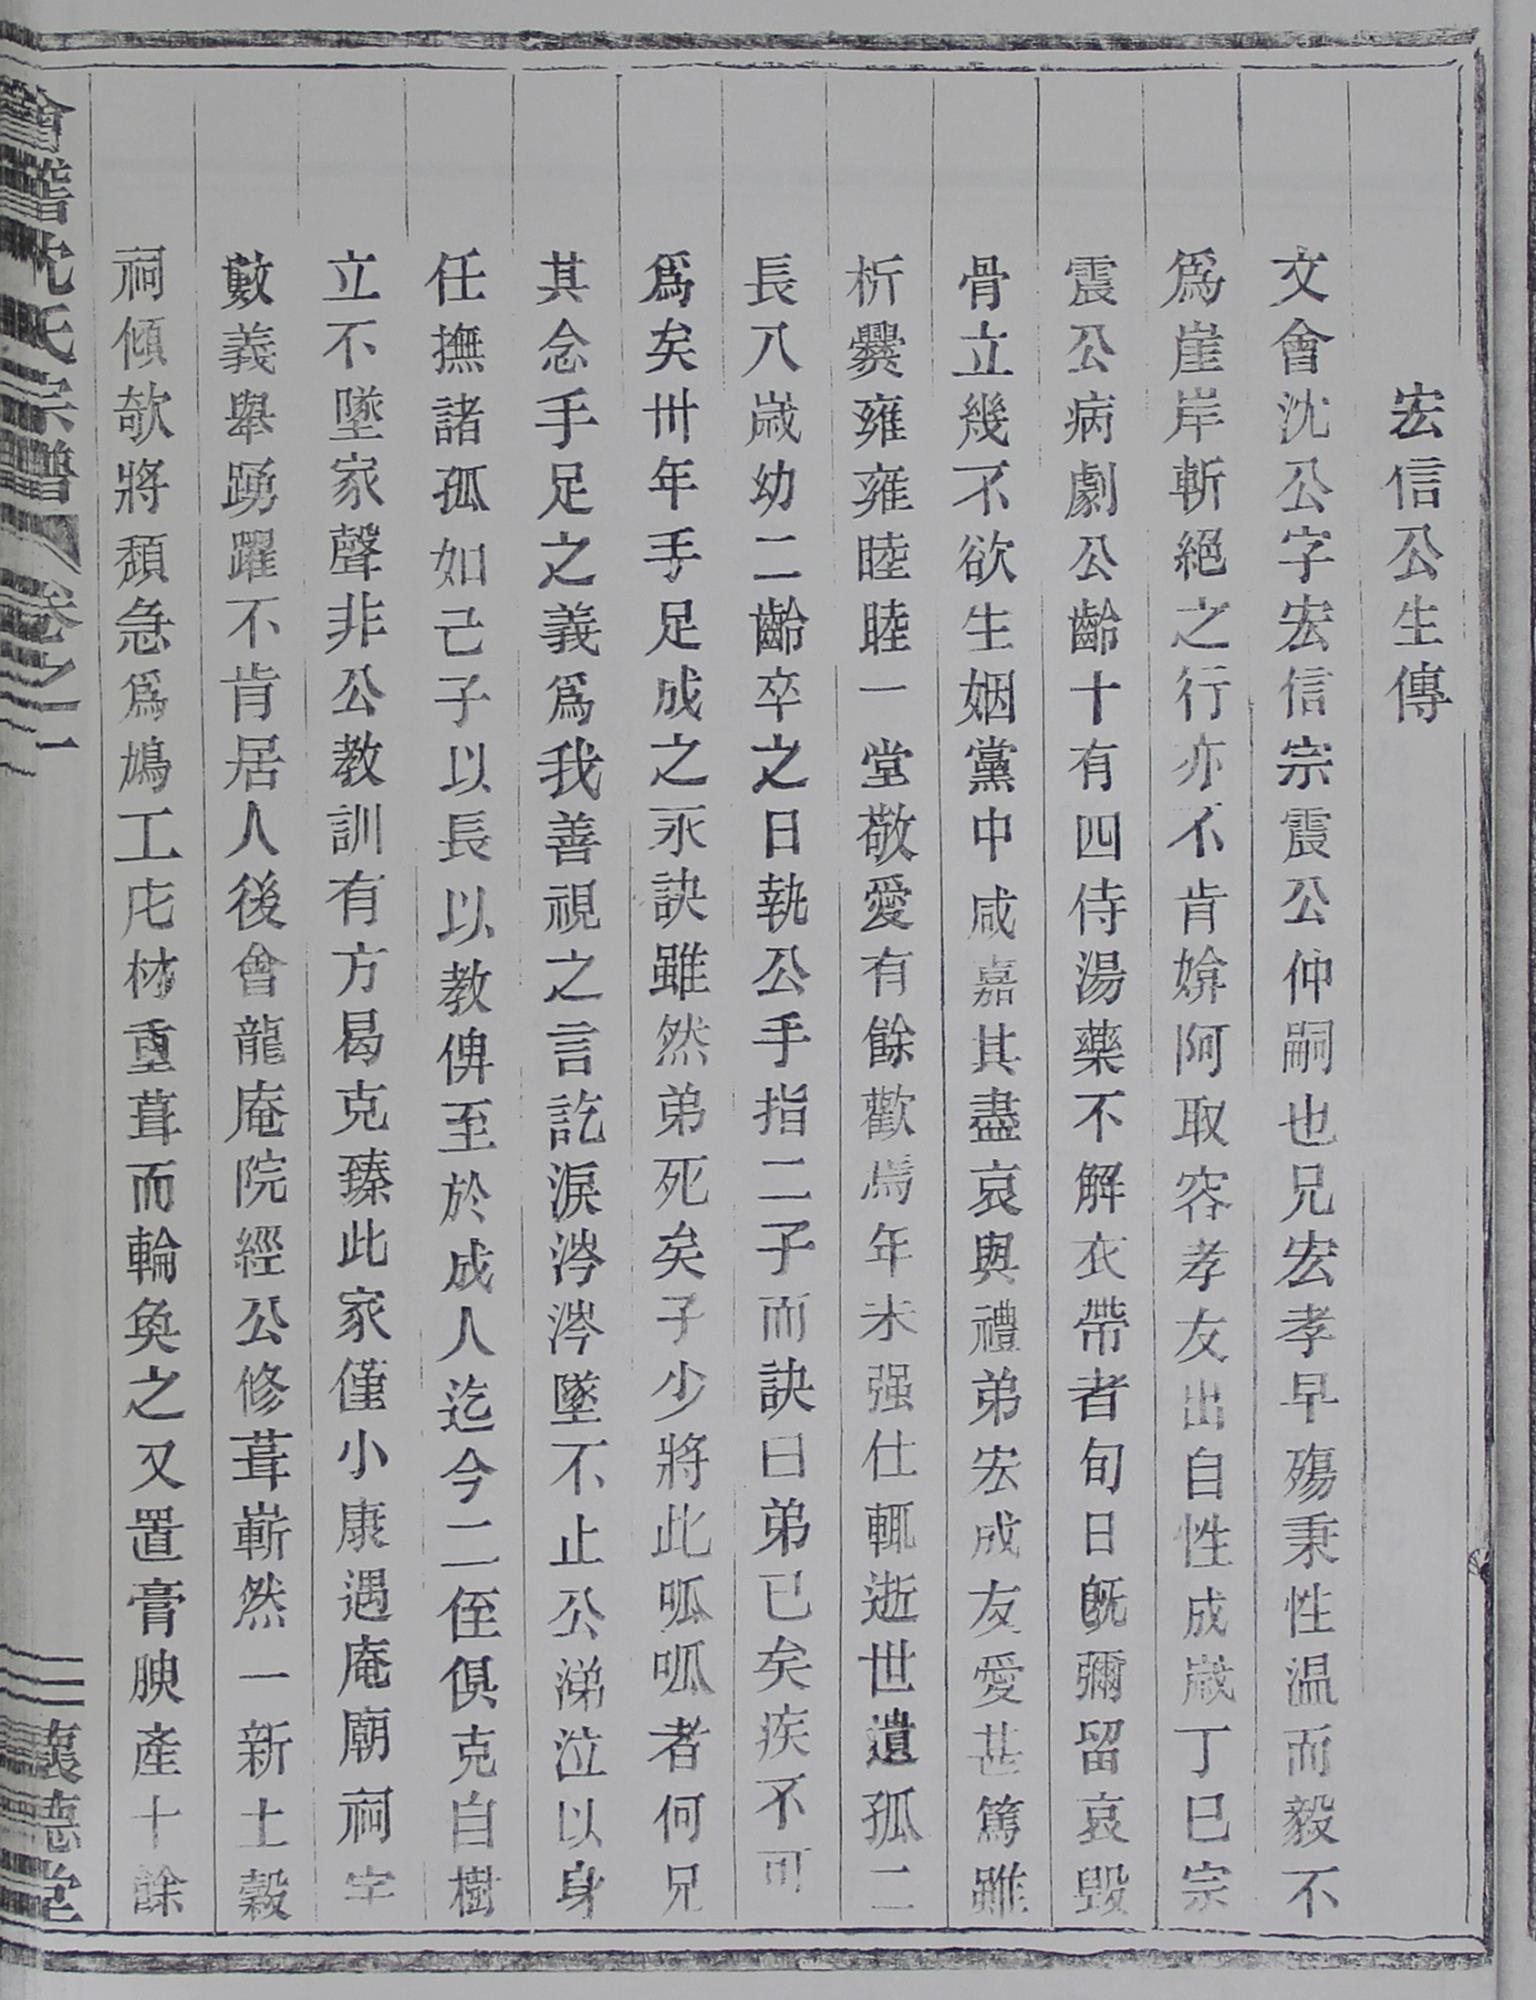 宏信公生傳
文會沈公字宏信宗震公仲嗣也兄宏孝早殤秉性温而毅不
爲崖岸斬絕之行亦不肯媕阿取容孝友出自性成歲丁巳宗
震公病劇公齡十有四侍湯藥不解衣帶者旬日旣彌留哀毀
骨立幾不欲生姻黨中咸嘉其盡哀與禮弟宏成友愛甚篤雖
析爨雍雍睦睦一堂敬愛有餘歡焉年未强仕輒逝世遺孤二
長八歲幼二齡卒之日執公手指二子而訣曰弟已矣疾不可
爲矣卅年手足成之永訣雖然弟死矣子少將此呱呱者何兄
其念手足之義爲我善視之言訖淚涔涔墜不止公涕泣以身
任撫諸孤如己子以長以教俾至於成人迄今二侄俱克自樹
立不墜家聲非公教訓有方曷克臻此家僅小康遇庵廟祠宇
數義舉踴躍不肯居人後會龍庵院經公修葺嶄然一新土穀
祠傾欹將頽急爲鳩工庀材重葺而輪奐之又置膏腴產十餘
會稽沈氏宗譜 卷之一 懷德堂